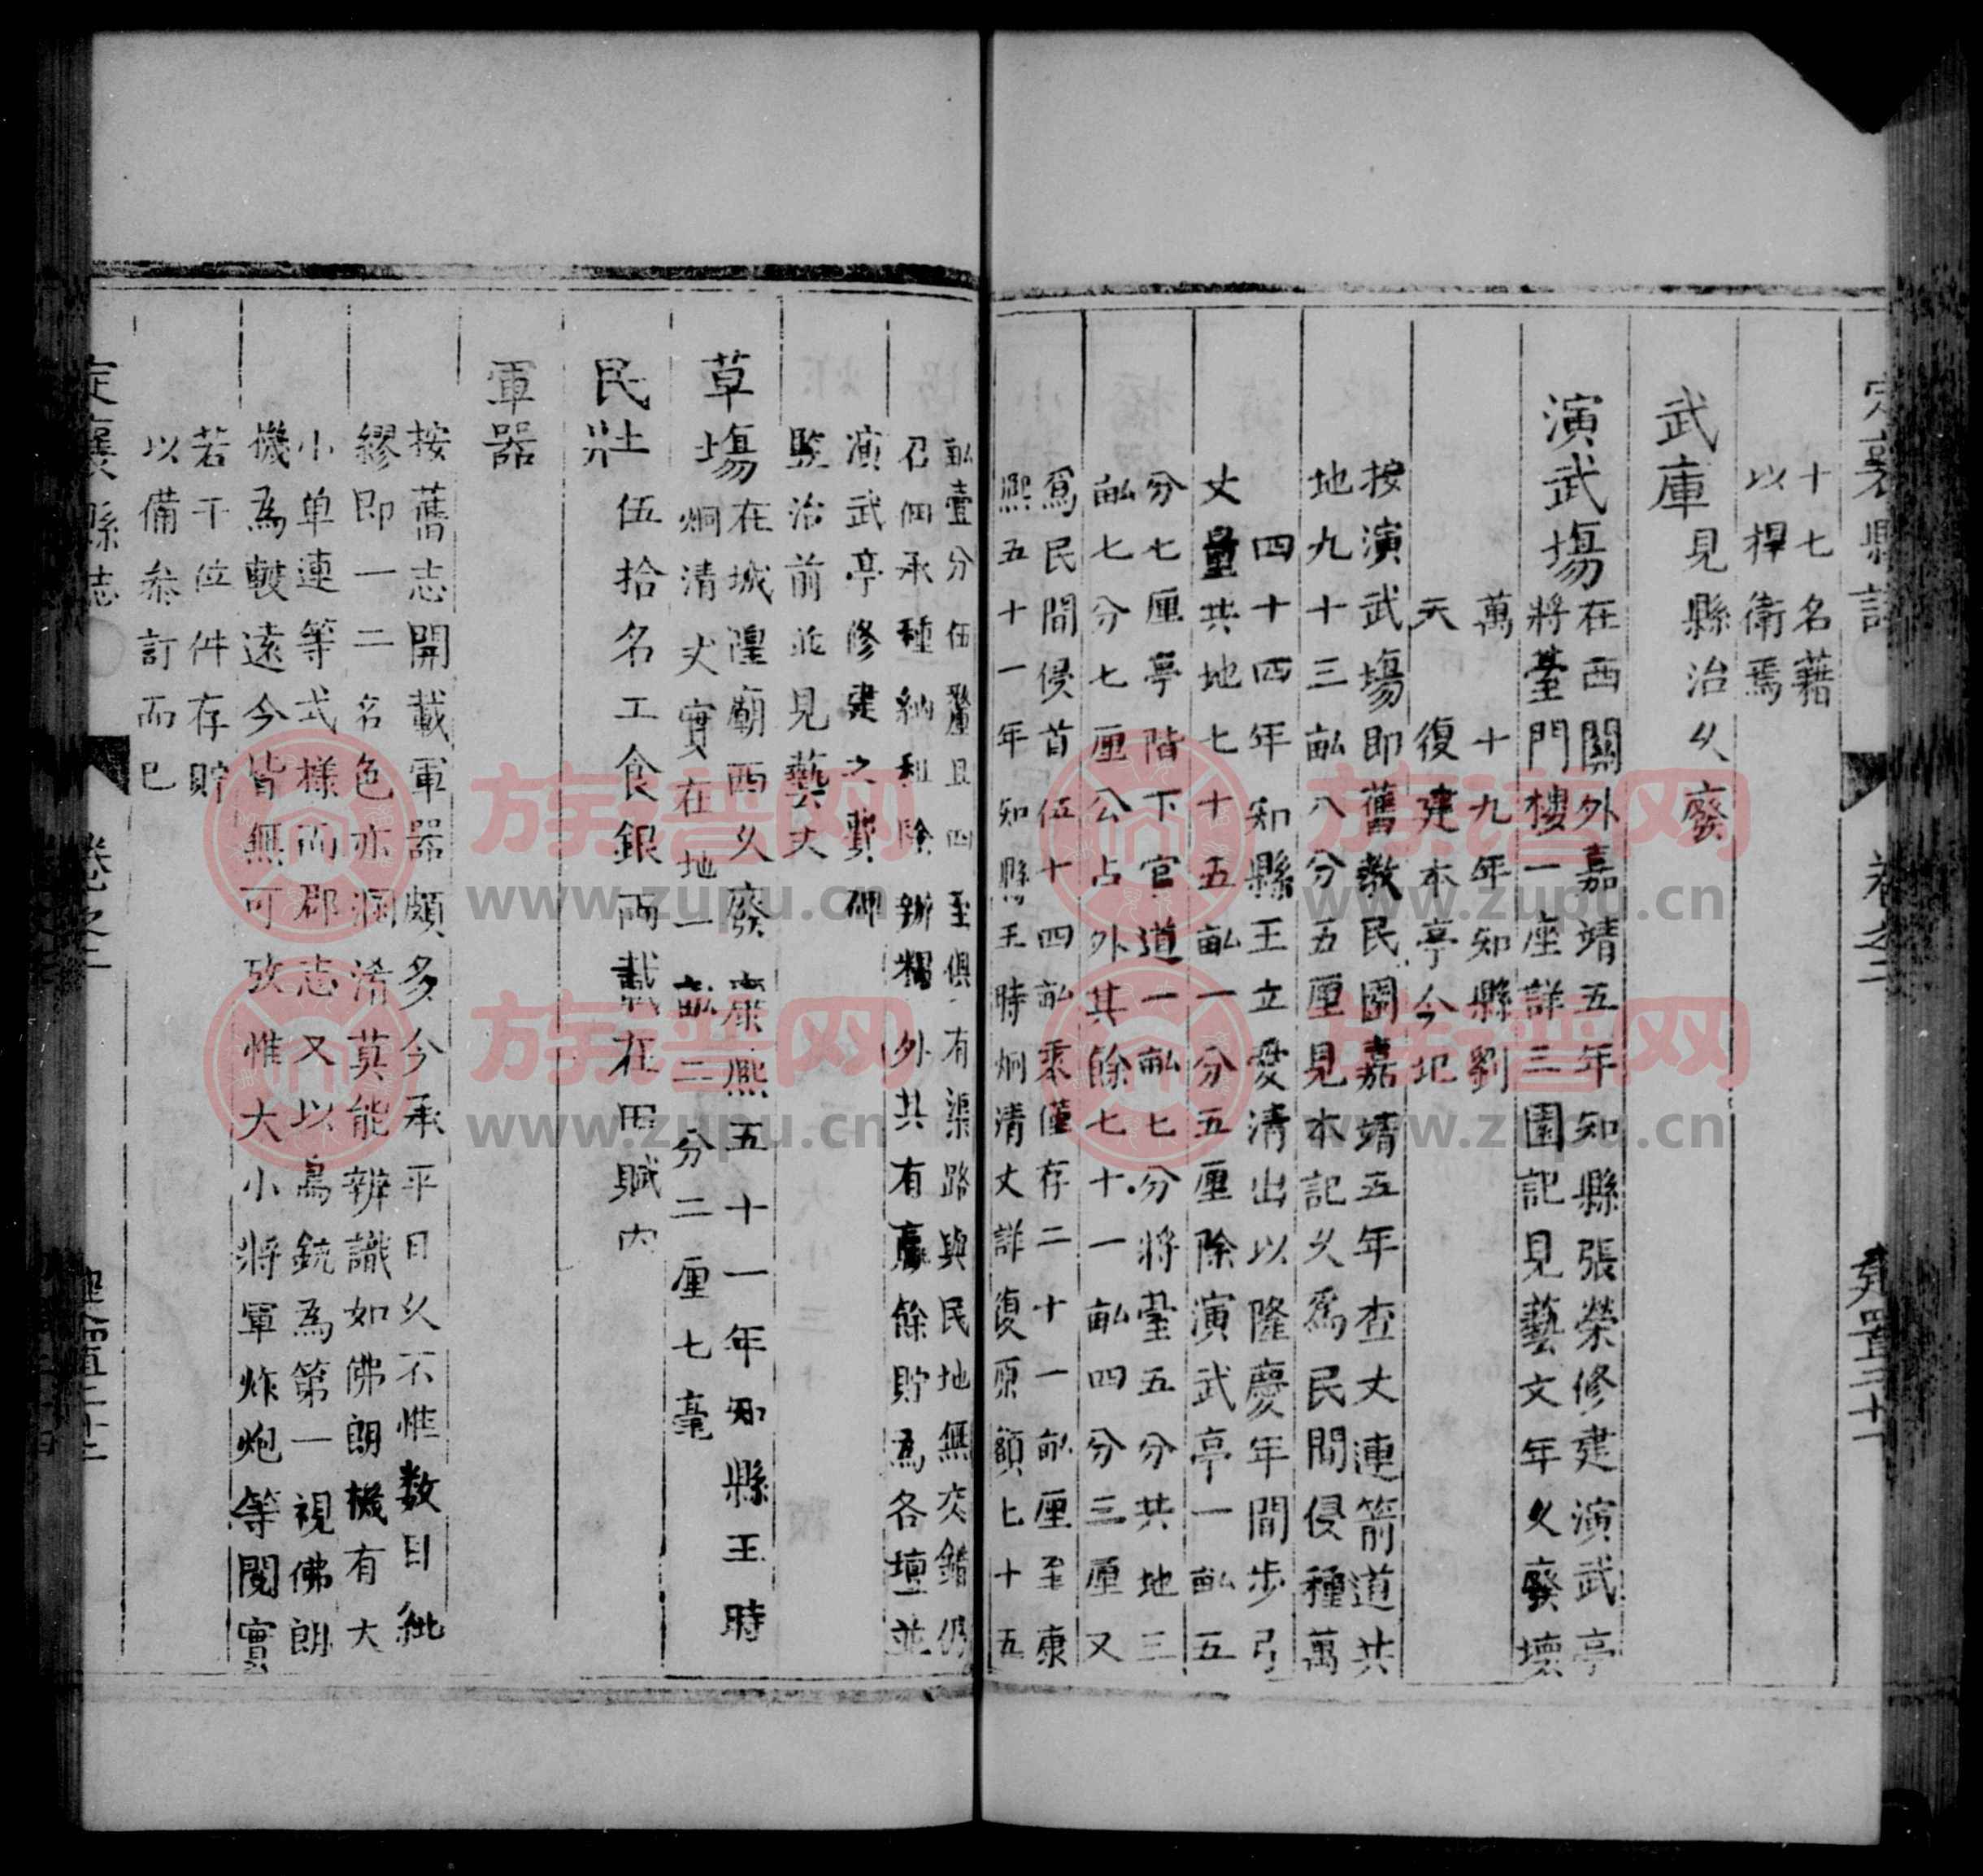 定襄縣志
卷之二
建置三十一
十七名藉
以捍衛焉
武庫見縣治久廢
演武塲在西關外嘉靖五年知縣張榮修建演武亭
將臺門樓一座詳三園記見藝文年久廢壞
萬 十九年知縣劉
天 復建本亭今圯
按演武塲即舊教民園嘉靖五年查丈連箭道共
地九十三畝八分五厘見本記久爲民間侵種萬
四十四年知縣王立愛清出以隆慶年間步弓
丈量共地七十五畝一分五厘除演武亭一畝五
分七厘亭階下官道一畝七分將臺五分共地三
畝七分七厘公占外其餘七十一畝四分三厘又
爲民間侵首伍十四畝柰僅存二十一畝厘至康
熈五十一年知縣王時炯清丈詳復原額七十五
畝壹分伍釐且四至俱有渠路與民地無交錯仍
召佃承種納租除辦糧外共有贏餘貯爲各壇並
演武亭修建之費碑
竪治前並見藝文
草塲在城隍廟西久廢康熈五十一年知縣王時
炯清丈實在地一畝二分二厘七毫
民壯伍拾名工食銀兩載在田賦内
軍器
按舊志開載軍器頗多今承平日久不惟数目紕
繆即一二名色亦溷淆莫能辨識如佛朗機有大
小单連等式様而郡志又以鳥銃為第一視佛朗
機為較遠今皆無可攷惟大小將軍炸炮等閱實
若干位件存貯
以備叅訂而已
定襄縣志
卷之二
建置三十二
族谱网
www.zupu.cn
族谱网
www.zupu.cn
族谱网
www.zupu.cn
族谱网
www.zupu.cn